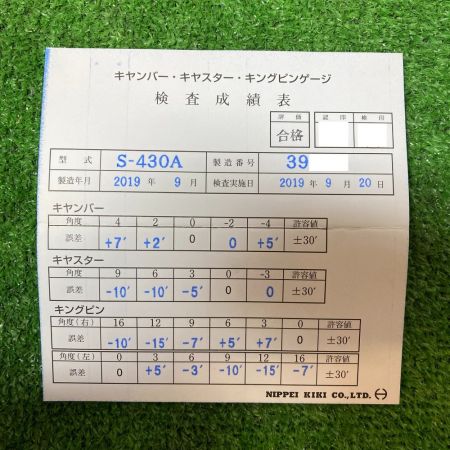 キャンバー・キャスター・キングピンゲージ
検査成績表
評価
合格 検印
型式 S-430A 製造番号 39
製造年月 2019 年 9 月 検査実施日 2019 年 9 月 20 日
キャンバー
角度 4 2 0 -2 -4 許容値
誤差 +7′ +2′ 0 0 +5′ ±30′
キャスター
角度 9 6 3 0 -3 許容値
誤差 -10′ -10′ -5′ 0 0 ±30′
キングピン
角度(右) 16 12 9 6 3 0 許容値
誤差 -10′ -15′ -7′ +5′ +7′ 0 ±30′
角度(左) 0 3 6 9 12 16 許容値
誤差 0 +5′ -3′ -10′ -15′ -7′ ±30′
NIPPEI KIKI CO.,LTD.